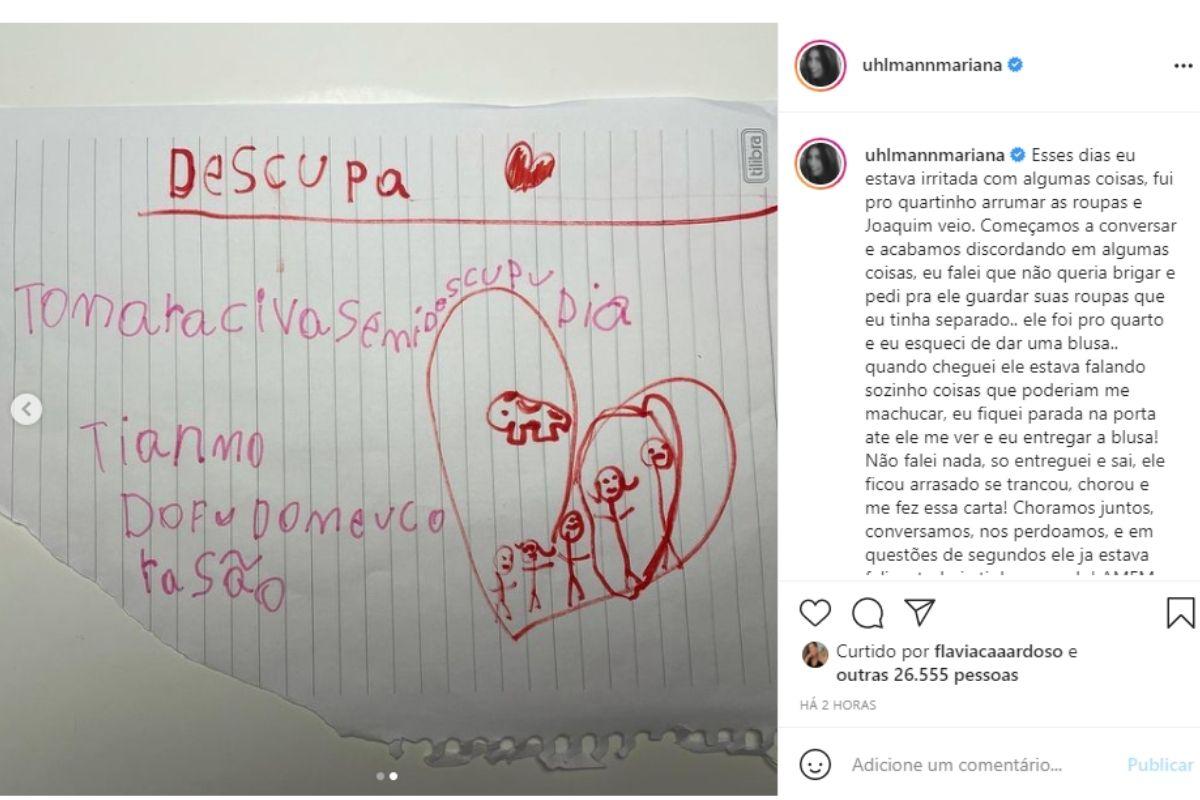 DeSCUPA
tilibra
TOMARACIVASeMiDeSCUPU DIA
TiANMO
DOFUDOMEUCO
RASÃO
uhlmannmariana
uhlmannmariana Esses dias eu
estava irritada com algumas coisas, fui
pro quartinho arrumar as roupas e
Joaquim veio. Começamos a conversar
e acabamos discordando em algumas
coisas, eu falei que não queria brigar e
pedi pra ele guardar suas roupas que
eu tinha separado.. ele foi pro quarto
e eu esqueci de dar uma blusa..
quando cheguei ele estava falando
sozinho coisas que poderiam me
machucar, eu fiquei parada na porta
ate ele me ver e eu entregar a blusa!
Não falei nada, so entreguei e sai, ele
ficou arrasado se trancou, chorou e
me fez essa carta! Choramos juntos,
conversamos, nos perdoamos, e em
questões de segundos ele ja estava
Curtido por flaviacaaardoso e
outras 26.555 pessoas
HÁ 2 HORAS
Adicione um comentário...
Publicar